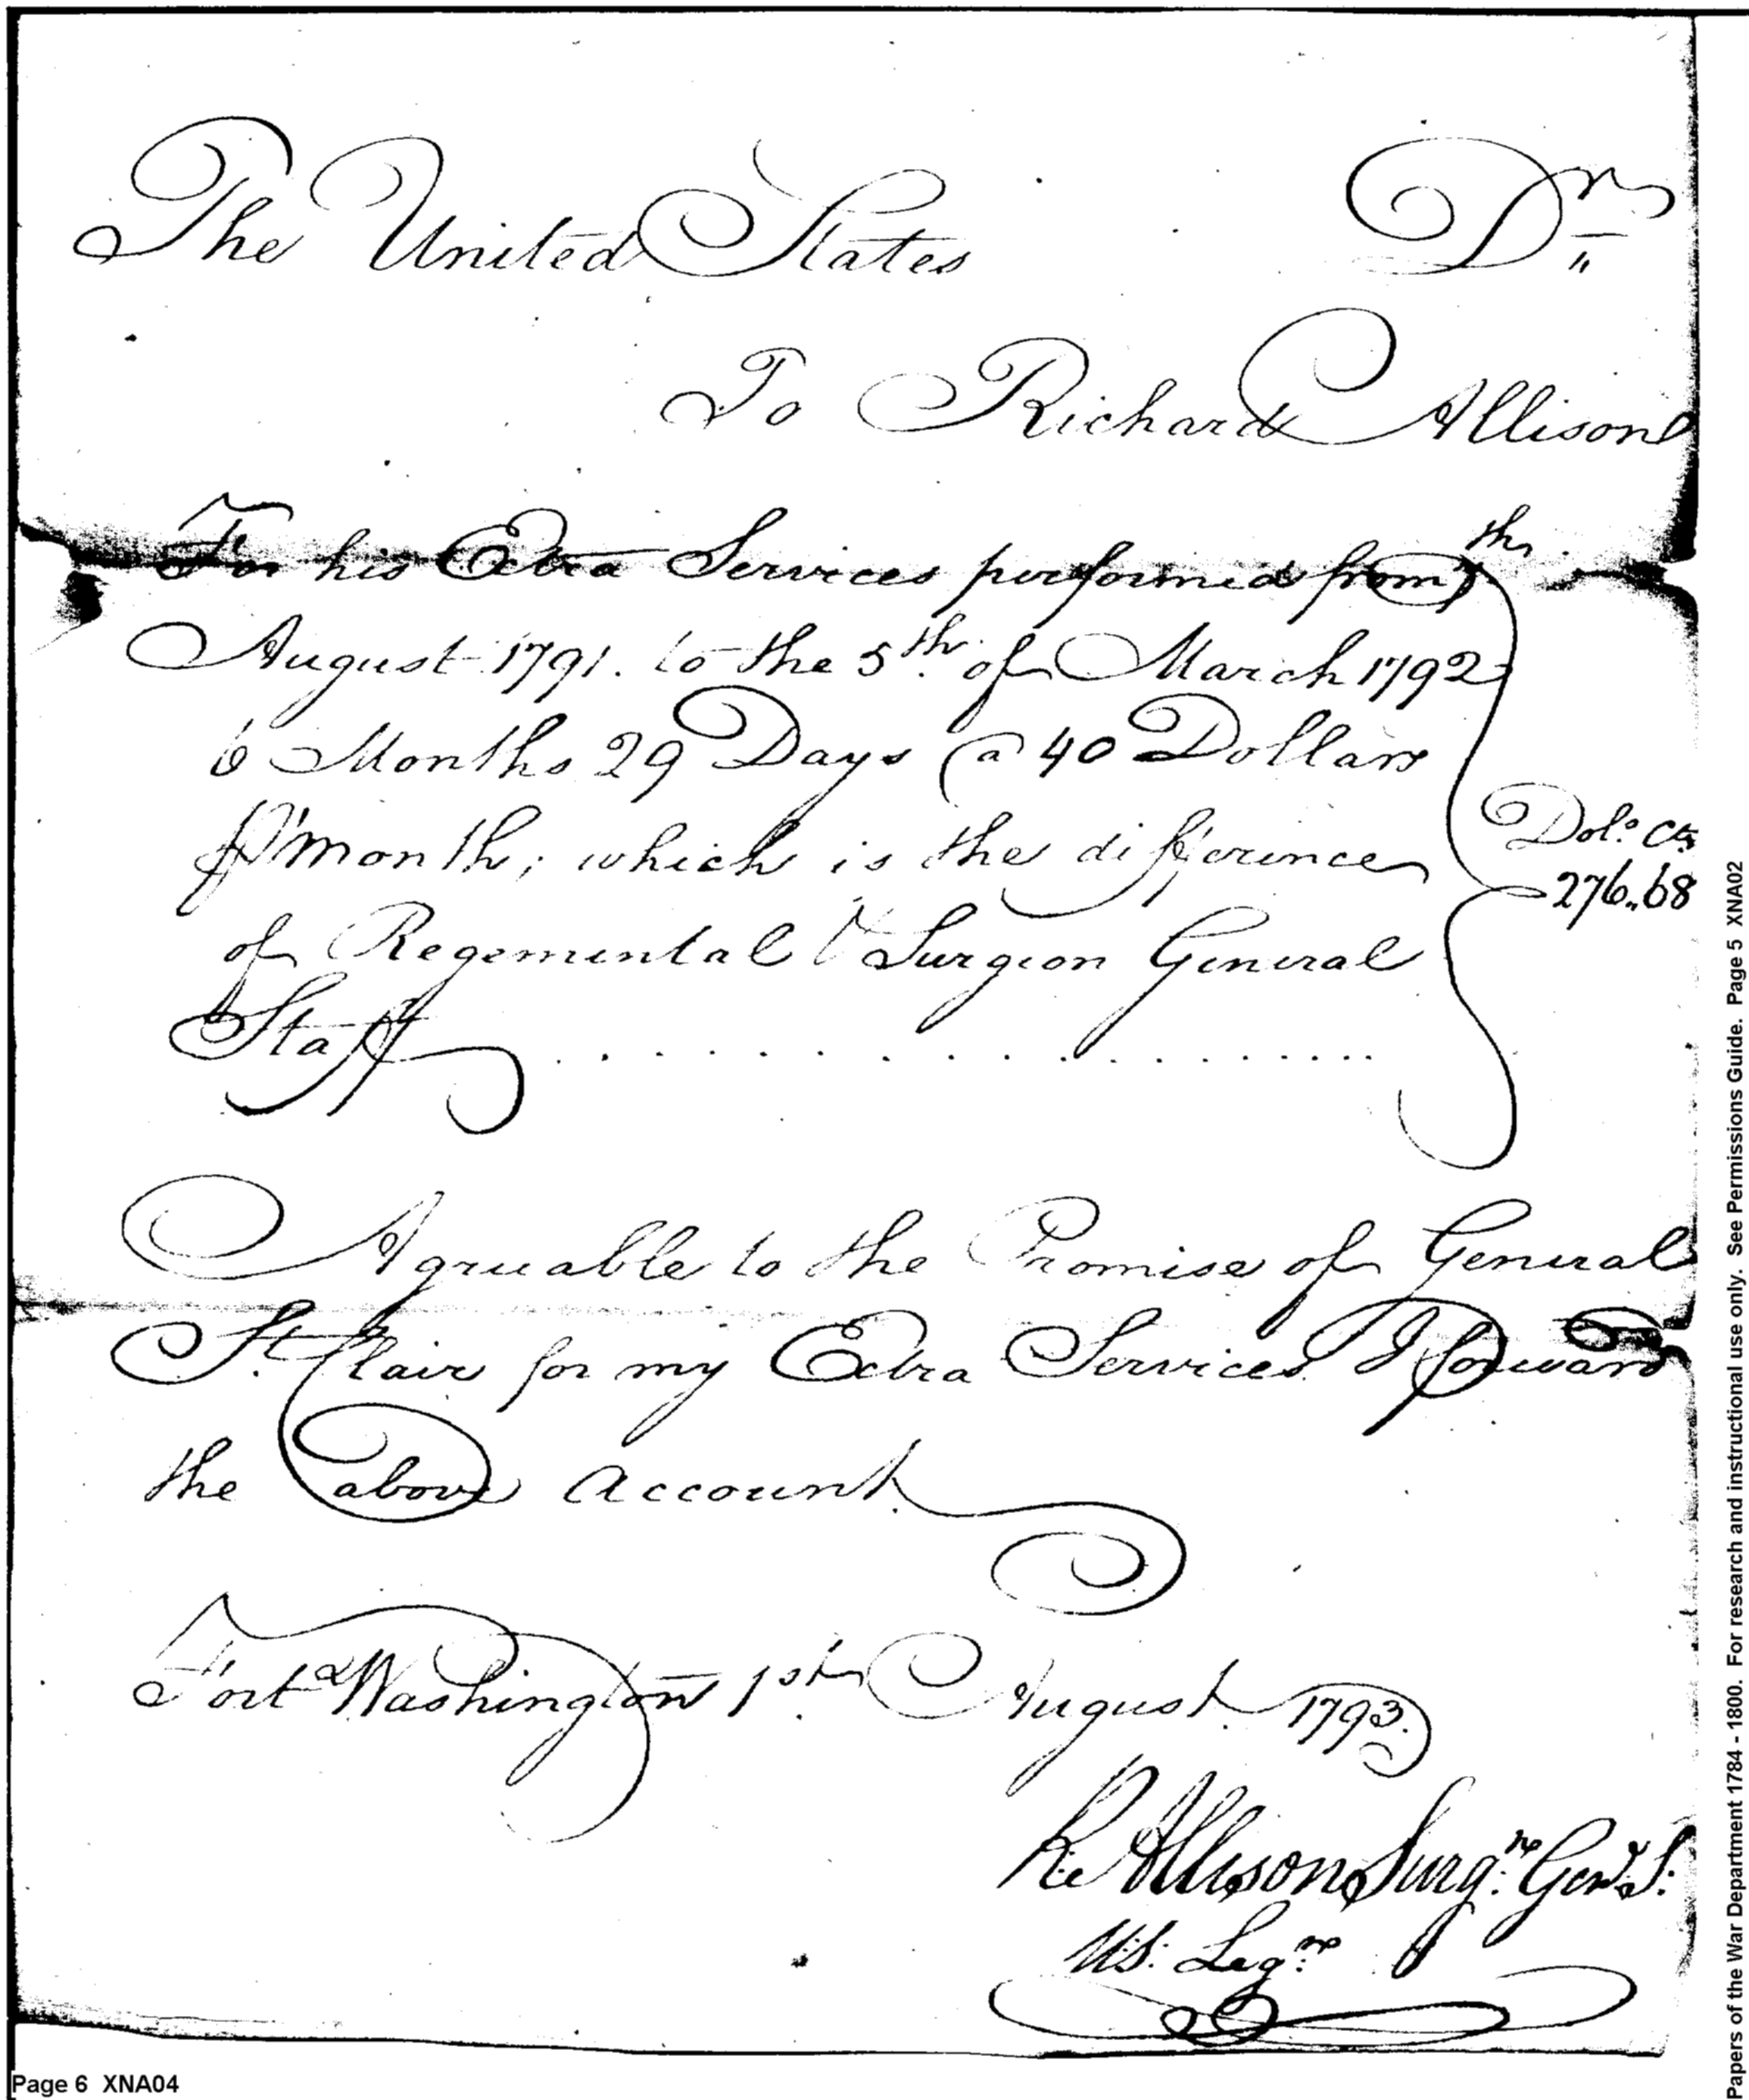 The United States Dr
To Richard Allison
For his Extra Services performed from 7th
August 1791. to the 5th. of March 1792
6 Months 29 Days @ 40 Dollars
⅌ month; which is the difference
of Regemental & Surgeon General
Staff . . . . . . . . . . . . . . . . . .
Dols. Cts
276.. 68
Agreeable to the Promise of General
St. Clair for my Extra Services I forward
the above account.
Fort Washington 1st. August 1793.
Rd Allison Surgn. Genl. S:
U.S. Legn.
Page 6 XNA04
Papers of the War Department 1784 - 1800. For research and instructional use only. See Permissions Guide. Page 5 XNA02